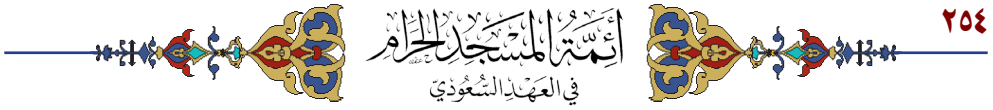 ٢٥٤
أَئِمَّةُ المَسْجِدِ الحَرَامِ
في العَهْدِ السُّعُودِيّ